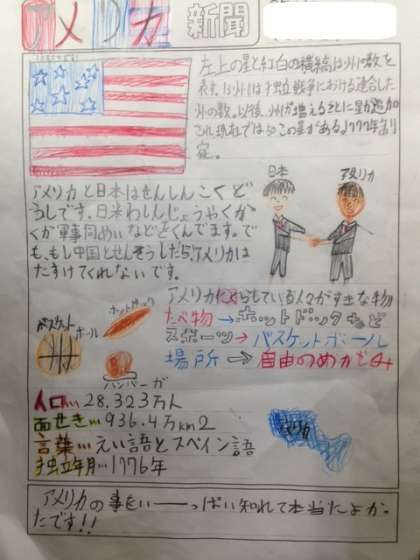 アメリカ新聞
左上の星と紅白の横縞は州の数を
表し13州は独立戦争における連合した
州の数。以後、州が増えるごとに星が追加
され現在では50この星がある1777年制
定。
日本 アメリカ
アメリカと日本はせんしんこくど
うしです。日米わしんじょうやくか
くが軍事同めいなどをくんでます。で
も、もし中国とせんそうしたら、アメリカは
たすけてくれないです。
アメリカにくらしている人々がすきな物
たべ物→ホットドックなど
スポーツ→バスケットボール
場所→自由のめがみ
バスケット
ボール
ホットドック
ハンバーガ
人口…28,323万人
面せき…936.4万km2
言葉…えい語とスペイン語
独立年月…1776年
アメリカの事をい――っぱい知れて本当によか
ったです!!